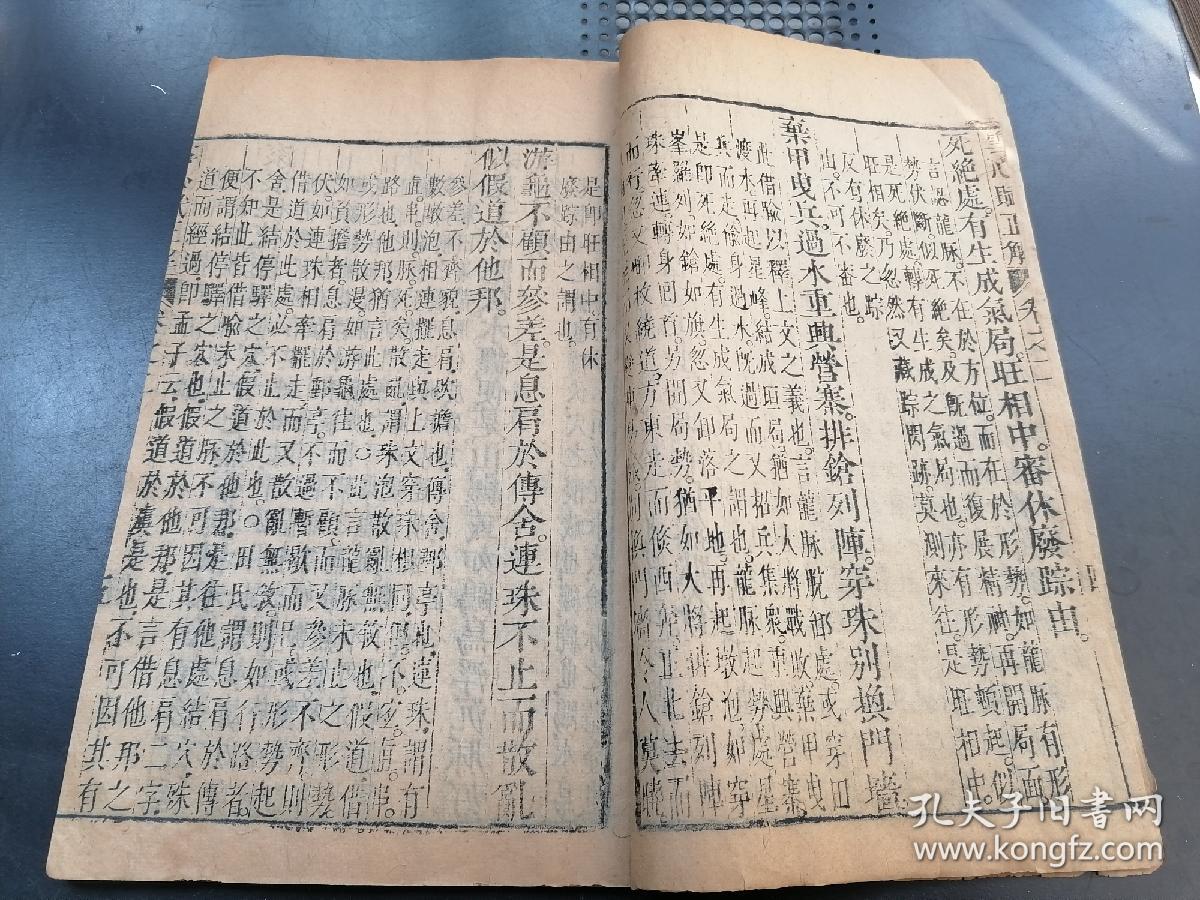 死絶處。有生成氣局。旺相中。審休廢踪由。
言認龍脉。不在於方位。而在於形勢。如龍脉有形
勢伏斷。似死絶矣。及既過而復展精神。再開局面
是死絶處。轉有生成之氣局也。亦有形勢頓起。似
旺相矣。乃忽然又藏踪閃跡。莫測來往。是旺相中。
反有休廢之踪
由。不可不審也。
葉甲曳兵。過水重興營寨。排鎗列陣。穿珠別換門墻
此借喻以釋上文之義也。言龍脉脫卸處。或穿田
渡水。再起星峰。結成垣局。猶如人將戰敗。葉甲曳
兵而走。偷身過水。旣過而又招兵集衆。重興營寨。
是卽死絶處。有生成氣局之謂也。龍脉起勢處。星
峯羅列。如鎗如旗。忽又卸落平地。再起墩泡。如穿
珠牽連。轉身回首。另開局勢。猶如大將排鎗列陣
而行。忽又
是卽旺相中有休
廢踪由之謂也。
游龜不顧而參差。是息肩於傳舍。連珠不止而散亂
似假道於他邦。
參差。不齊貌。息肩。歇擔也。傳舍。郵亭也。連珠。謂有
數墩泡。相連擺走。與上文穿珠相同。但不定
路也。他邦。猶言此處也。○
或形勢散漫。如游龜往而不顧。而又參差不齊。則
如負擔者。息肩於郵亭。不過暫歇而已。或形勢起
伏。如連珠相牽擺走。而又散亂無敘。則如行路者
借道於此處。必不止於此也。○田氏謂息肩於傳
舍。是結停驛之穴。假道於他那。是往他處結穴。殊
不知此皆借喻未止之脉。不可因其有息肩二字。
便謂結停驛之穴也。假道於他那。是言借他邦之
道而經過。卽孟子云。假道於虞是也。不可因其有
孔夫子旧书网
www.kongfz.com